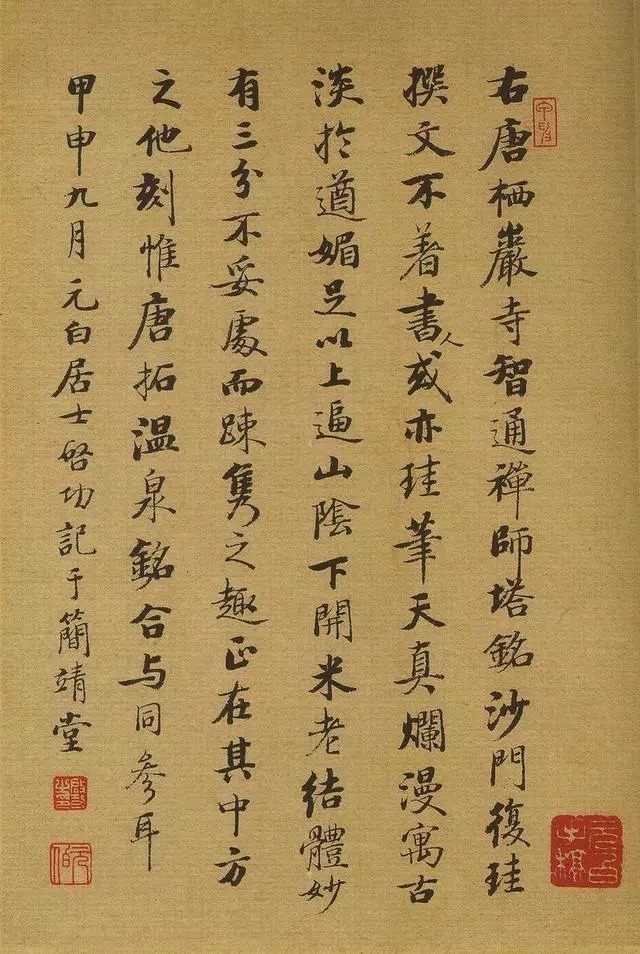 右唐栖巖寺智通禪師塔銘沙門復珪
撰文不著書人或亦珪筆天真爛漫寓古
淡於遒媚足以上逼山陰下開米老結體妙
有三分不妥處而踈雋之趣正在其中方
之他刻惟唐拓温泉銘合与同參耳
甲申九月元白居士啓功記于簡靖堂
啓功
元白